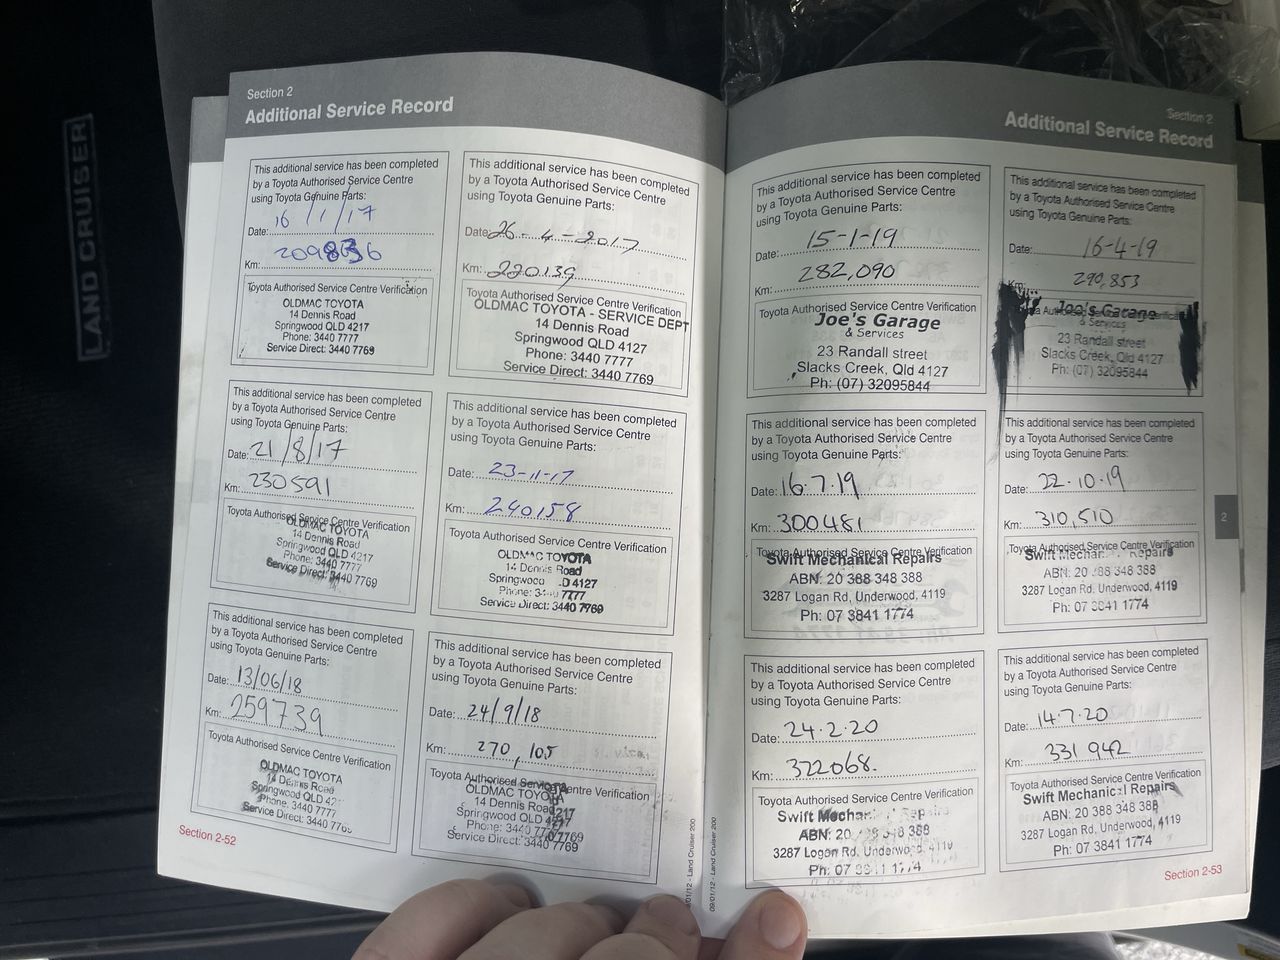 LAND CRUISER
Section 2
Additional Service Record
This additional service has been completed
by a Toyota Authorised Service Centre
using Toyota Genuine Parts:
Date: 16/1/17
Km: 209836
Toyota Authorised Service Centre Verification
OLDMAC TOYOTA
14 Dennis Road
Springwood QLD 4217
Phone: 3440 7777
Service Direct: 3440 7769
This additional service has been completed
by a Toyota Authorised Service Centre
using Toyota Genuine Parts:
Date: 26-4-2017
Km: 220139
Toyota Authorised Service Centre Verification
OLDMAC TOYOTA - SERVICE DEPT
14 Dennis Road
Springwood QLD 4127
Phone: 3440 7777
Service Direct: 3440 7769
This additional service has been completed
by a Toyota Authorised Service Centre
using Toyota Genuine Parts:
Date: 21/8/17
Km: 230591
Toyota Authorised Service Centre Verification
OLDMAC TOYOTA
14 Dennis Road
Springwood QLD 4217
Phone: 3440 7777
Service Direct: 3440 7769
This additional service has been completed
by a Toyota Authorised Service Centre
using Toyota Genuine Parts:
Date: 23-11-17
Km: 240158
Toyota Authorised Service Centre Verification
OLDMAC TOYOTA
14 Dennis Road
Springwood QLD 4127
Phone: 3440 7777
Service Direct: 3440 7769
This additional service has been completed
by a Toyota Authorised Service Centre
using Toyota Genuine Parts:
Date: 13/06/18
Km: 259739
Toyota Authorised Service Centre Verification
OLDMAC TOYOTA
14 Dennis Road
Springwood QLD
Phone: 3440 7777
Service Direct: 3440 7769
This additional service has been completed
by a Toyota Authorised Service Centre
using Toyota Genuine Parts:
Date: 24/9/18
Km: 270,105
Toyota Authorised Service Centre Verification
OLDMAC TOYOTA
14 Dennis Road
Springwood QLD 4217
Phone: 3440 7777
Service Direct: 3440 7769
Section 2-52
09/01/12 - Land Cruiser 200
Section 2
Additional Service Record
This additional service has been completed
by a Toyota Authorised Service Centre
using Toyota Genuine Parts:
Date: 15-1-19
Km: 282,090
Toyota Authorised Service Centre Verification
Joe's Garage
& Services
23 Randall street
Slacks Creek, Qld 4127
Ph: (07) 32095844
This additional service has been completed
by a Toyota Authorised Service Centre
using Toyota Genuine Parts:
Date: 16-4-19
Km: 290,853
Joe's Garage
& Services
23 Randall street
Slacks Creek, Qld 4127
Ph: (07) 32095844
This additional service has been completed
by a Toyota Authorised Service Centre
using Toyota Genuine Parts:
Date: 16.7.19
Km: 300481
Toyota Authorised Service Centre Verification
Swift Mechanical Repairs
ABN: 20 388 348 388
3287 Logan Rd, Underwood, 4119
Ph: 07 3841 1774
This additional service has been completed
by a Toyota Authorised Service Centre
using Toyota Genuine Parts:
Date: 22.10.19
Km: 310,510
Toyota Authorised Service Centre Verification
Swift Mechanical Repairs
ABN: 20 388 348 388
3287 Logan Rd, Underwood, 4119
Ph: 07 3841 1774
This additional service has been completed
by a Toyota Authorised Service Centre
using Toyota Genuine Parts:
Date: 24.2.20
Km: 322068.
Toyota Authorised Service Centre Verification
Swift Mechanical Repairs
ABN: 20 388 348 388
3287 Logan Rd, Underwood, 4119
Ph: 07 3841 1774
This additional service has been completed
by a Toyota Authorised Service Centre
using Toyota Genuine Parts:
Date: 14.7.20
Km: 331942
Toyota Authorised Service Centre Verification
Swift Mechanical Repairs
ABN: 20 388 348 388
3287 Logan Rd, Underwood, 4119
Ph: 07 3841 1774
2
Section 2-53
09/01/12 - Land Cruiser 200